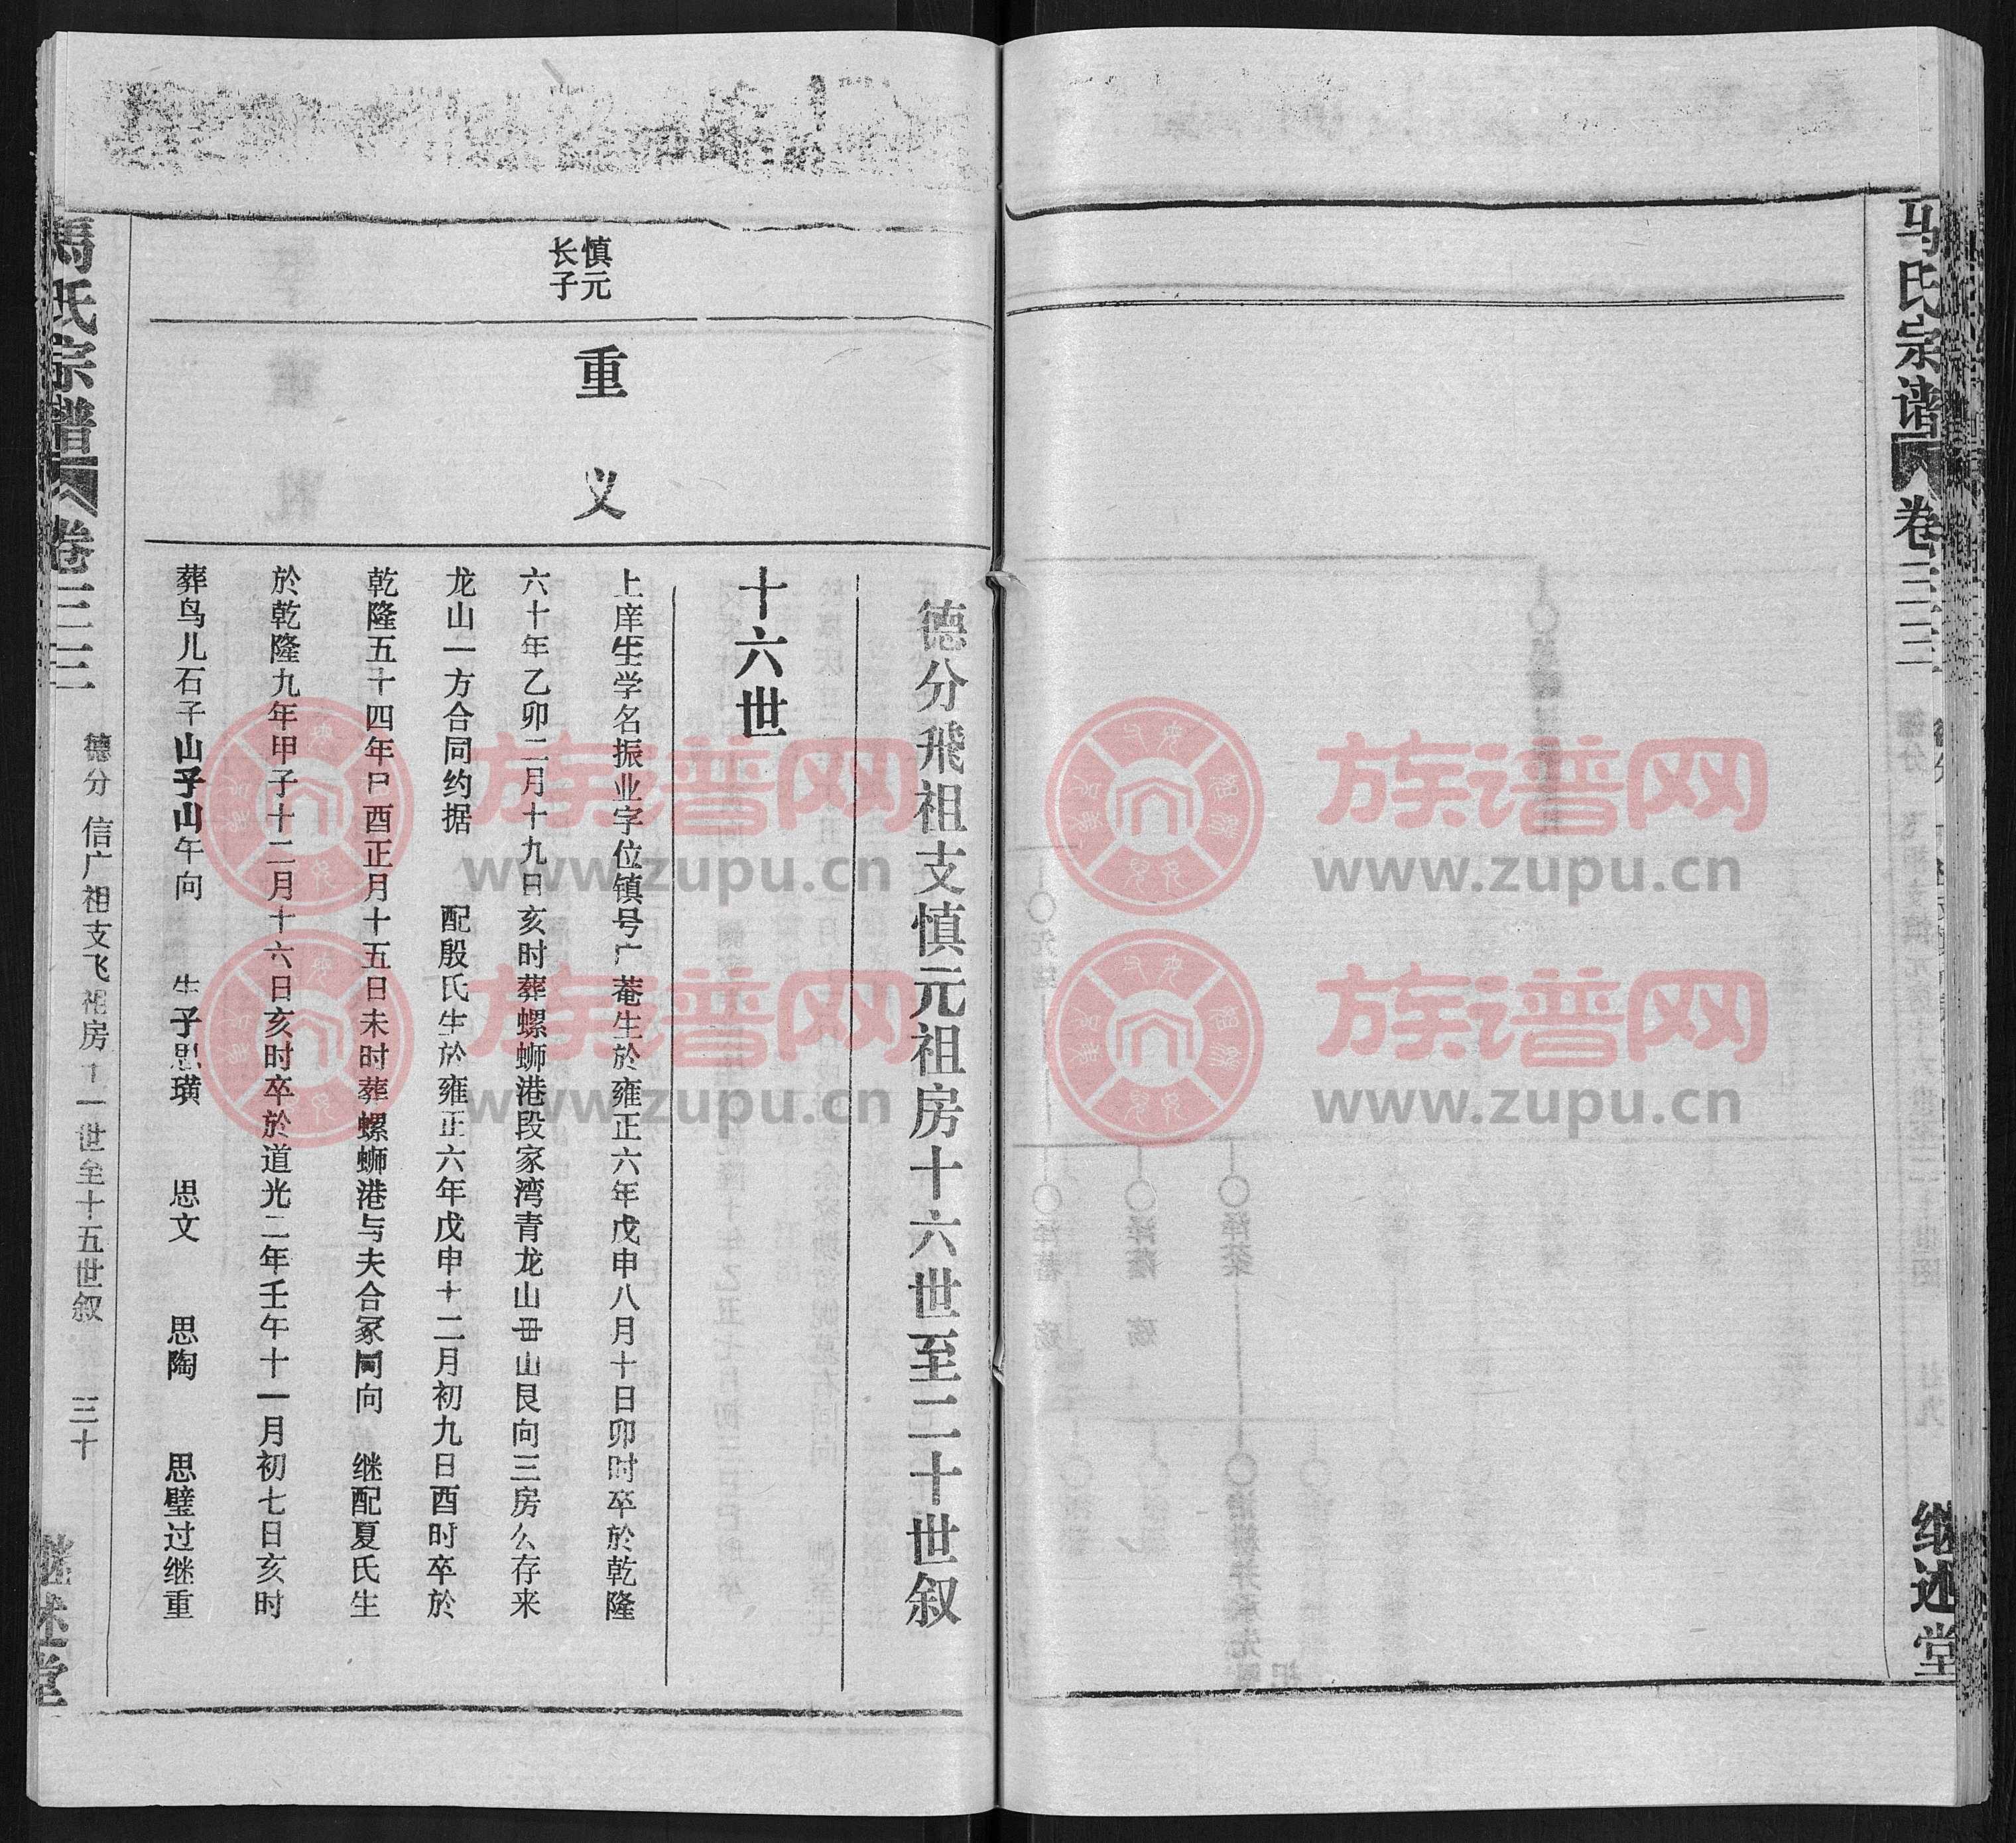 马氏宗谱
卷三三
继述堂
德分飛祖支慎元祖房十六世至二十世叙
十六世
慎元
长子
重义
上庠生学名振业字位镇号广菴生於雍正六年戊申八月十日卯时卒於乾隆
六十年乙卯二月十九日亥时葬螺蛳港段家湾青龙山毌山艮向三房么存来
龙山一方合同约据 配殷氏生於雍正六年戊申十二月初九日酉时卒於
乾隆五十四年巳酉正月十五日未时葬螺蛳港与夫合冢同向 继配夏氏生
於乾隆九年甲子十二月十六日亥时卒於道光二年壬午十一月初七日亥时
葬鸟儿石子山子山午向 生子思璜 思文 思陶 思璧过继重
马氏宗譜
卷三三
德分 信广祖支飞祖房十一世至十五世叙 三十
继述堂
族谱网
www.zupu.cn
族谱网
www.zupu.cn
族谱网
www.zupu.cn
族谱网
www.zupu.cn